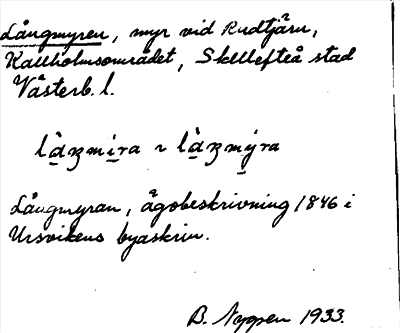 Långmyren, myr vid Rudtjärn,
Kallholmsområdet, Skellefteå stad
Västerb. l.
Långmyran, ägobeskrivning 1846 i
Ursvikens byaskrin.
B. 1933.